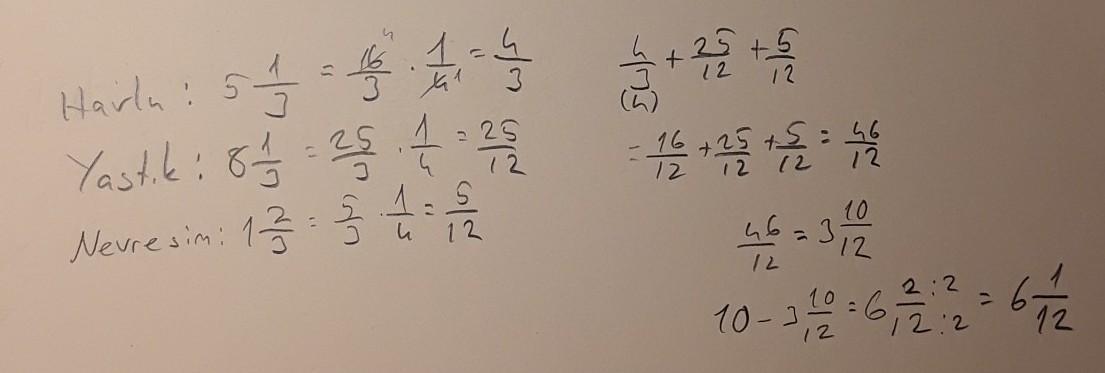 Havlu : 5 1/3 = 16/3 4 . 1/4 1 = 4/3
Yastık : 8 1/3 = 25/3 . 1/4 = 25/12
Nevresim : 1 2/3 = 5/3 . 1/4 = 5/12
4/3 + 25/12 + 5/12
(4)
= 16/12 + 25/12 + 5/12 = 46/12
46/12 = 3 10/12
10 - 3 10/12 = 6 2:2/12:2 = 6 1/12